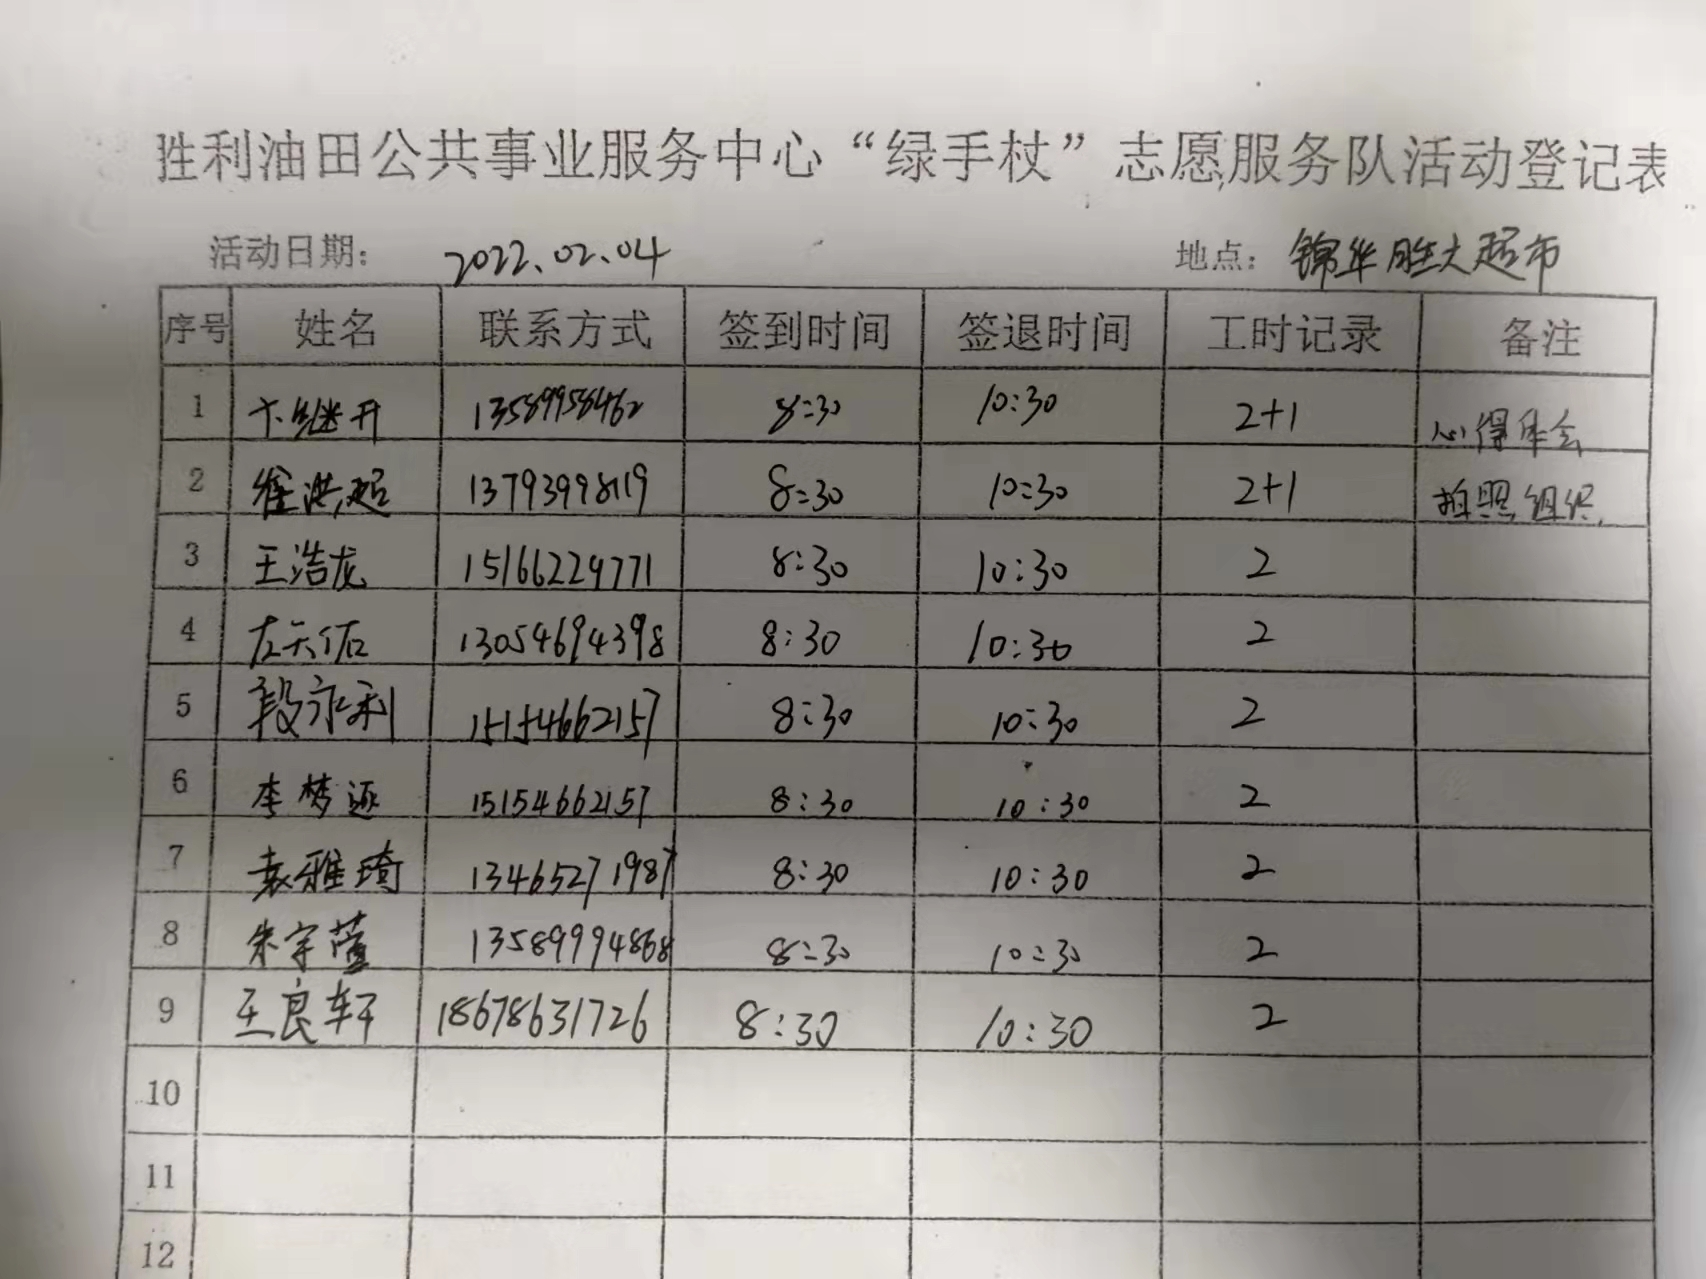 胜利油田公共事业服务中心“绿手杖”志愿服务队活动登记表
活动日期： 2022.02.04 地点：锦华胜大超市
序号 姓名 联系方式 签到时间 签退时间 工时记录 备注
1 卞继开 13589958462 8:30 10:30 2+1 心得体会
2 徐洪超 13793998119 8:30 10:30 2+1 拍照组织
3 王浩龙 15166224771 8:30 10:30 2
4 左天佑 13054694398 8:30 10:30 2
5 段永利 15154662157 8:30 10:30 2
6 李梦 15154662157 8:30 10:30 2
7 袁雅琦 13465271987 8:30 10:30 2
8 朱宇萱 13589994868 8:30 10:30 2
9 王良轩 18678631726 8:30 10:30 2
10
11
12